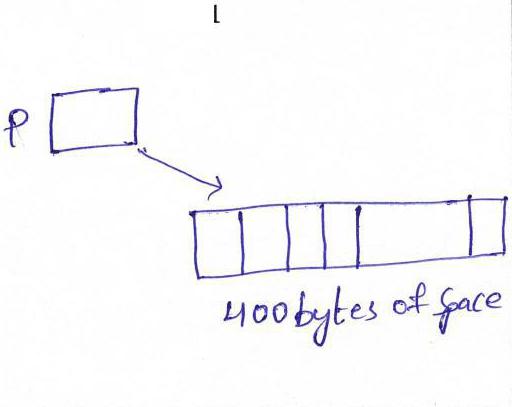 P
400bytes of space